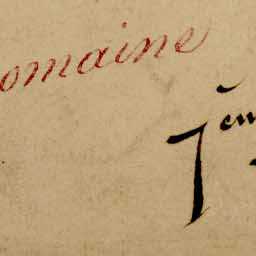 omaine
7em